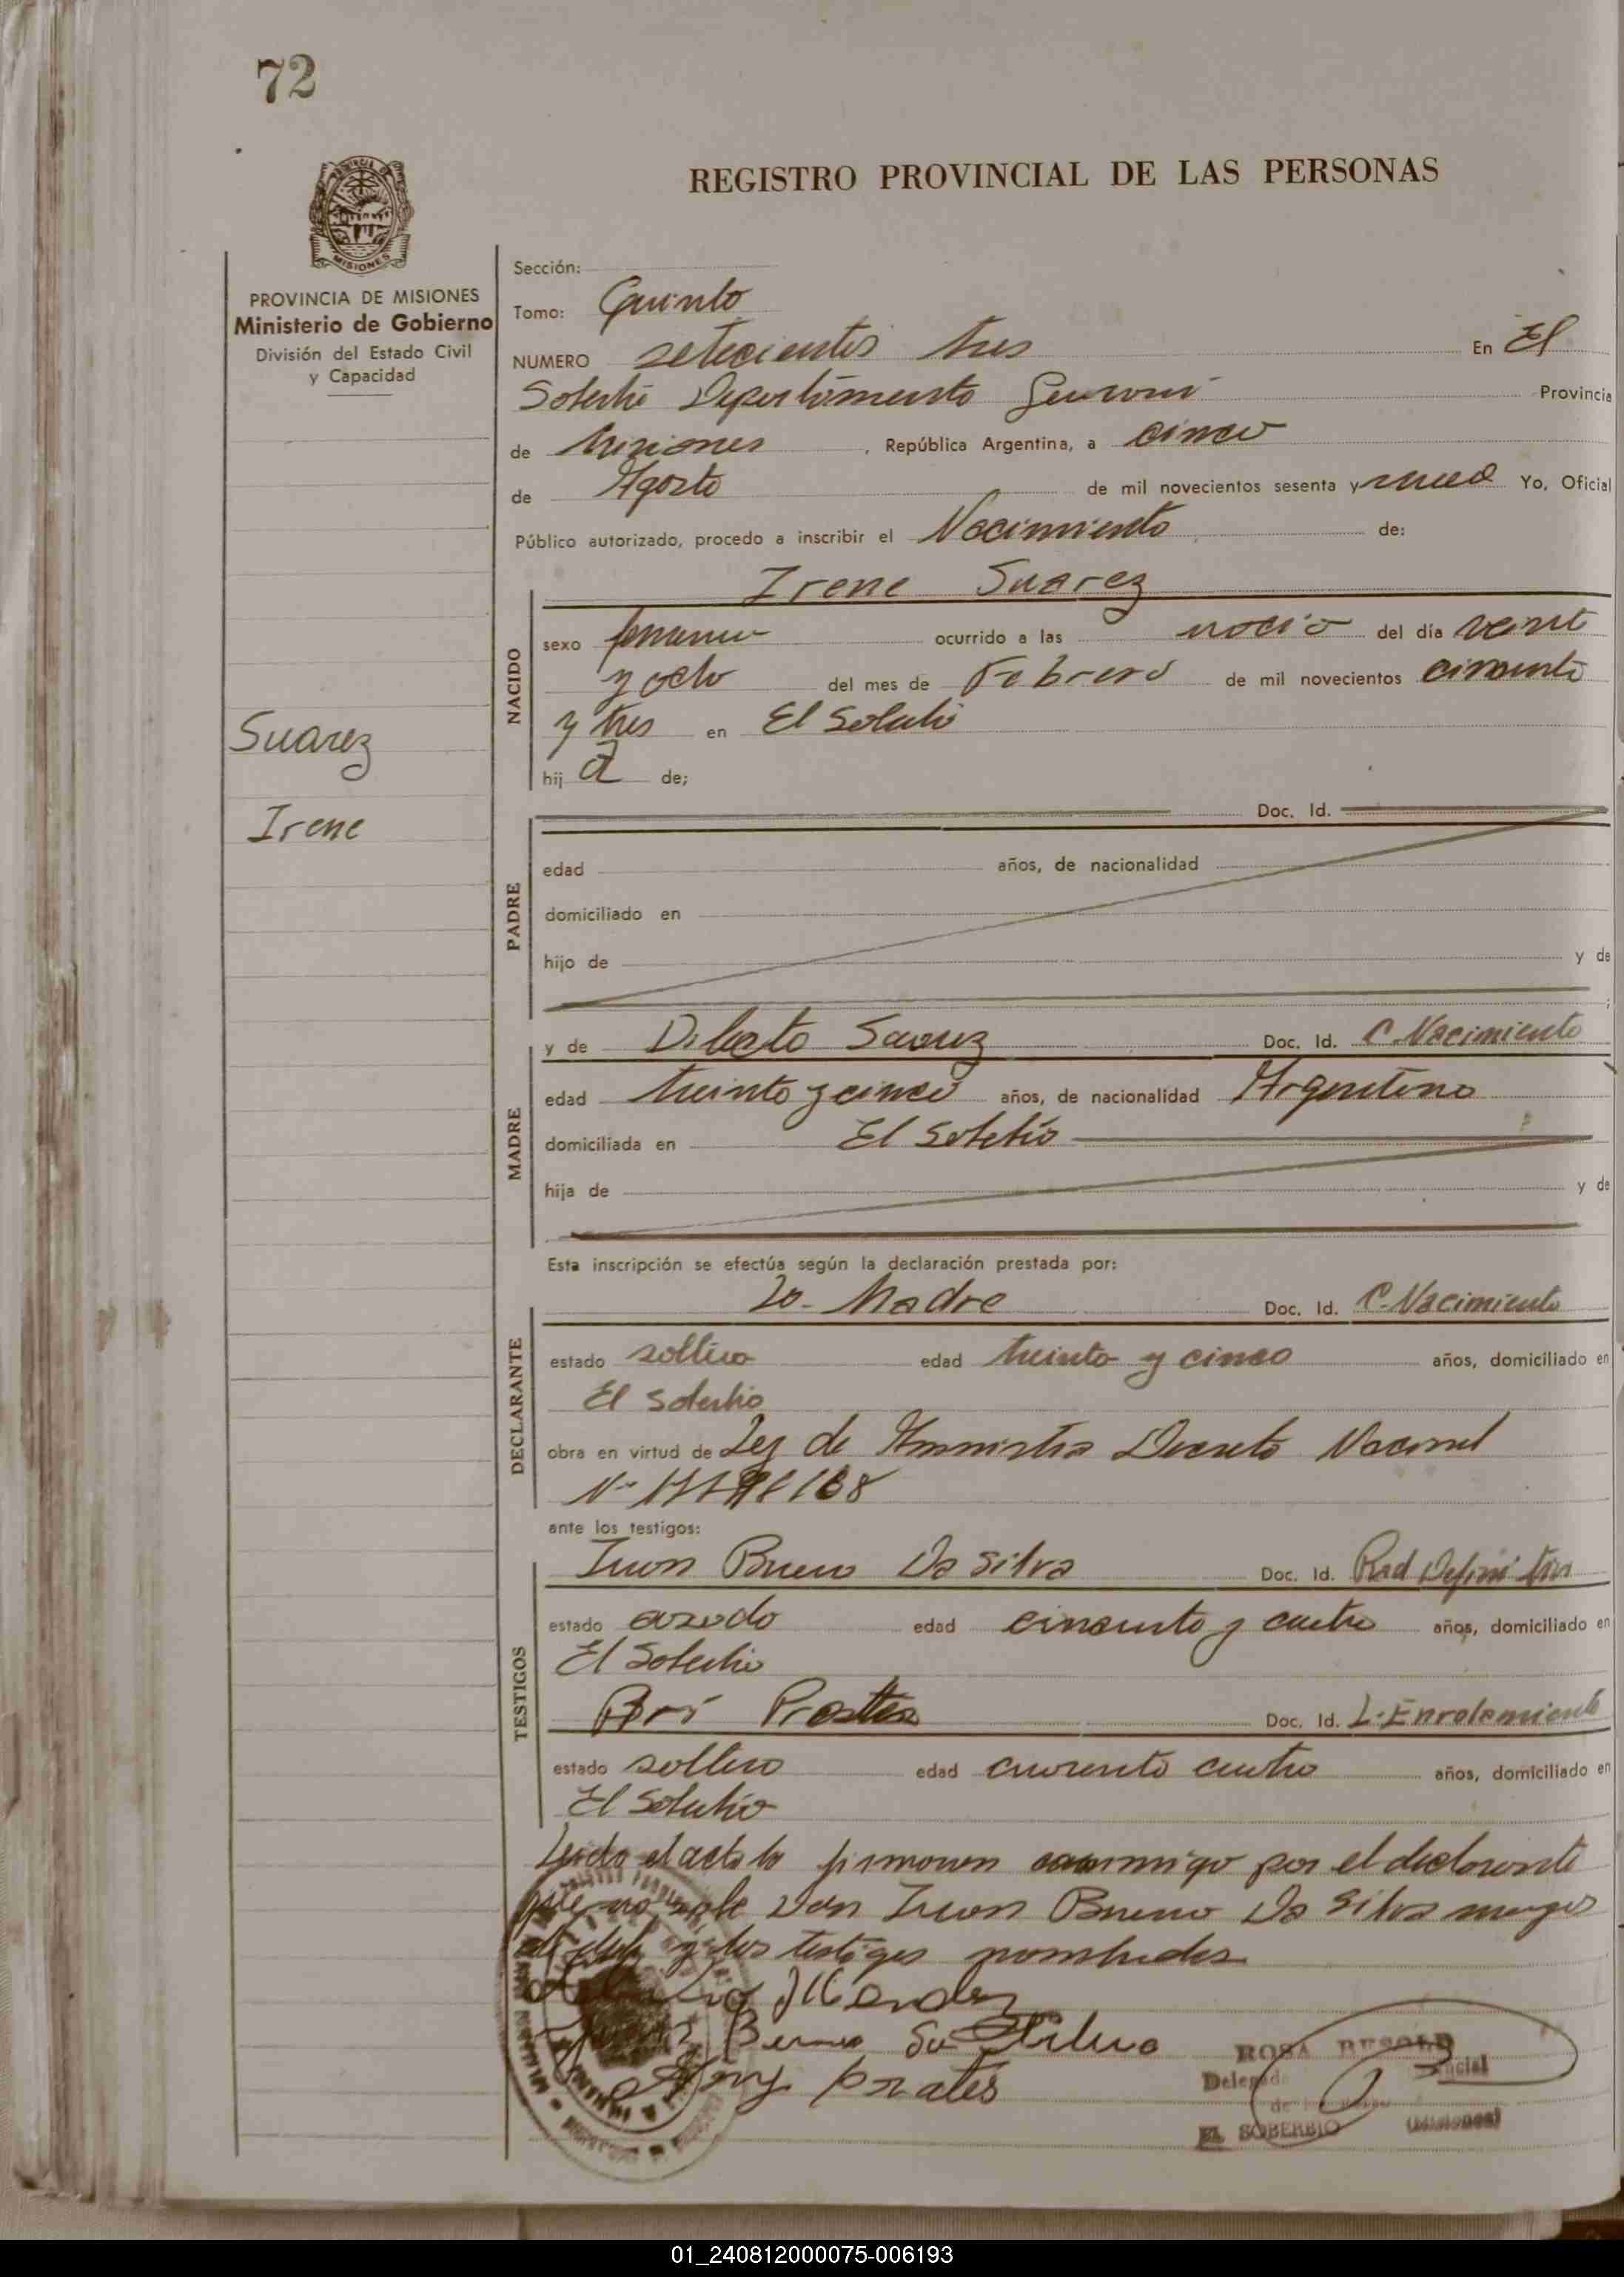 72
REGISTRO PROVINCIAL DE LAS PERSONAS
MISIONES
PROVINCIA DE MISIONES
Ministerio de Gobierno
División del Estado Civil
y Capacidad
Suarez
Irene
Sección:
Tomo: Quinto
NUMERO setecientos tres En El
Soberbio Departamento Guaraní Provincia
de Misiones , República Argentina, a cinco
de Agosto de mil novecientos sesenta y nueve Yo, Oficial
Público autorizado, procedo a inscribir el Nacimiento de:
Irene Suarez
NACIDO
sexo femenino ocurrido a las nació del día veinte
y ocho del mes de Febrero de mil novecientos cincuenta
y tres en El Soberbio
hij a de;
Doc. Id.
PADRE
edad años, de nacionalidad
domiciliado en
hijo de y de
y de Suarez Doc. Id. C. Nacimiento
MADRE
edad treinta y cinco años, de nacionalidad Argentina
domiciliada en El Soberbio
hija de y de
Esta inscripción se efectúa según la declaración prestada por:
La Madre Doc. Id. C. Nacimiento
DECLARANTE
estado soltera edad treinta y cinco años, domiciliado en
El Soberbio
obra en virtud de Ley de Amnistia Decreto Nacional
ante los testigos:
Juan Bueno Da Silva Doc. Id. Rad Definitiva
TESTIGOS
estado casado edad cincuenta y cuatro años, domiciliado en
El Soberbio
Ari Prates Doc. Id. L. Enrolamiento
estado soltero edad cuarenta cuatro años, domiciliado en
El Soberbio
Leido el acta la firmaron conmigo por el declarante
que no sabe Don Juan Bueno Da Silva
y los testigos nombrados
Bueno Da Silva
Ary Prates
ROSA
Delegada
EL SOBERBIO (Misiones)
01_240812000075-006193